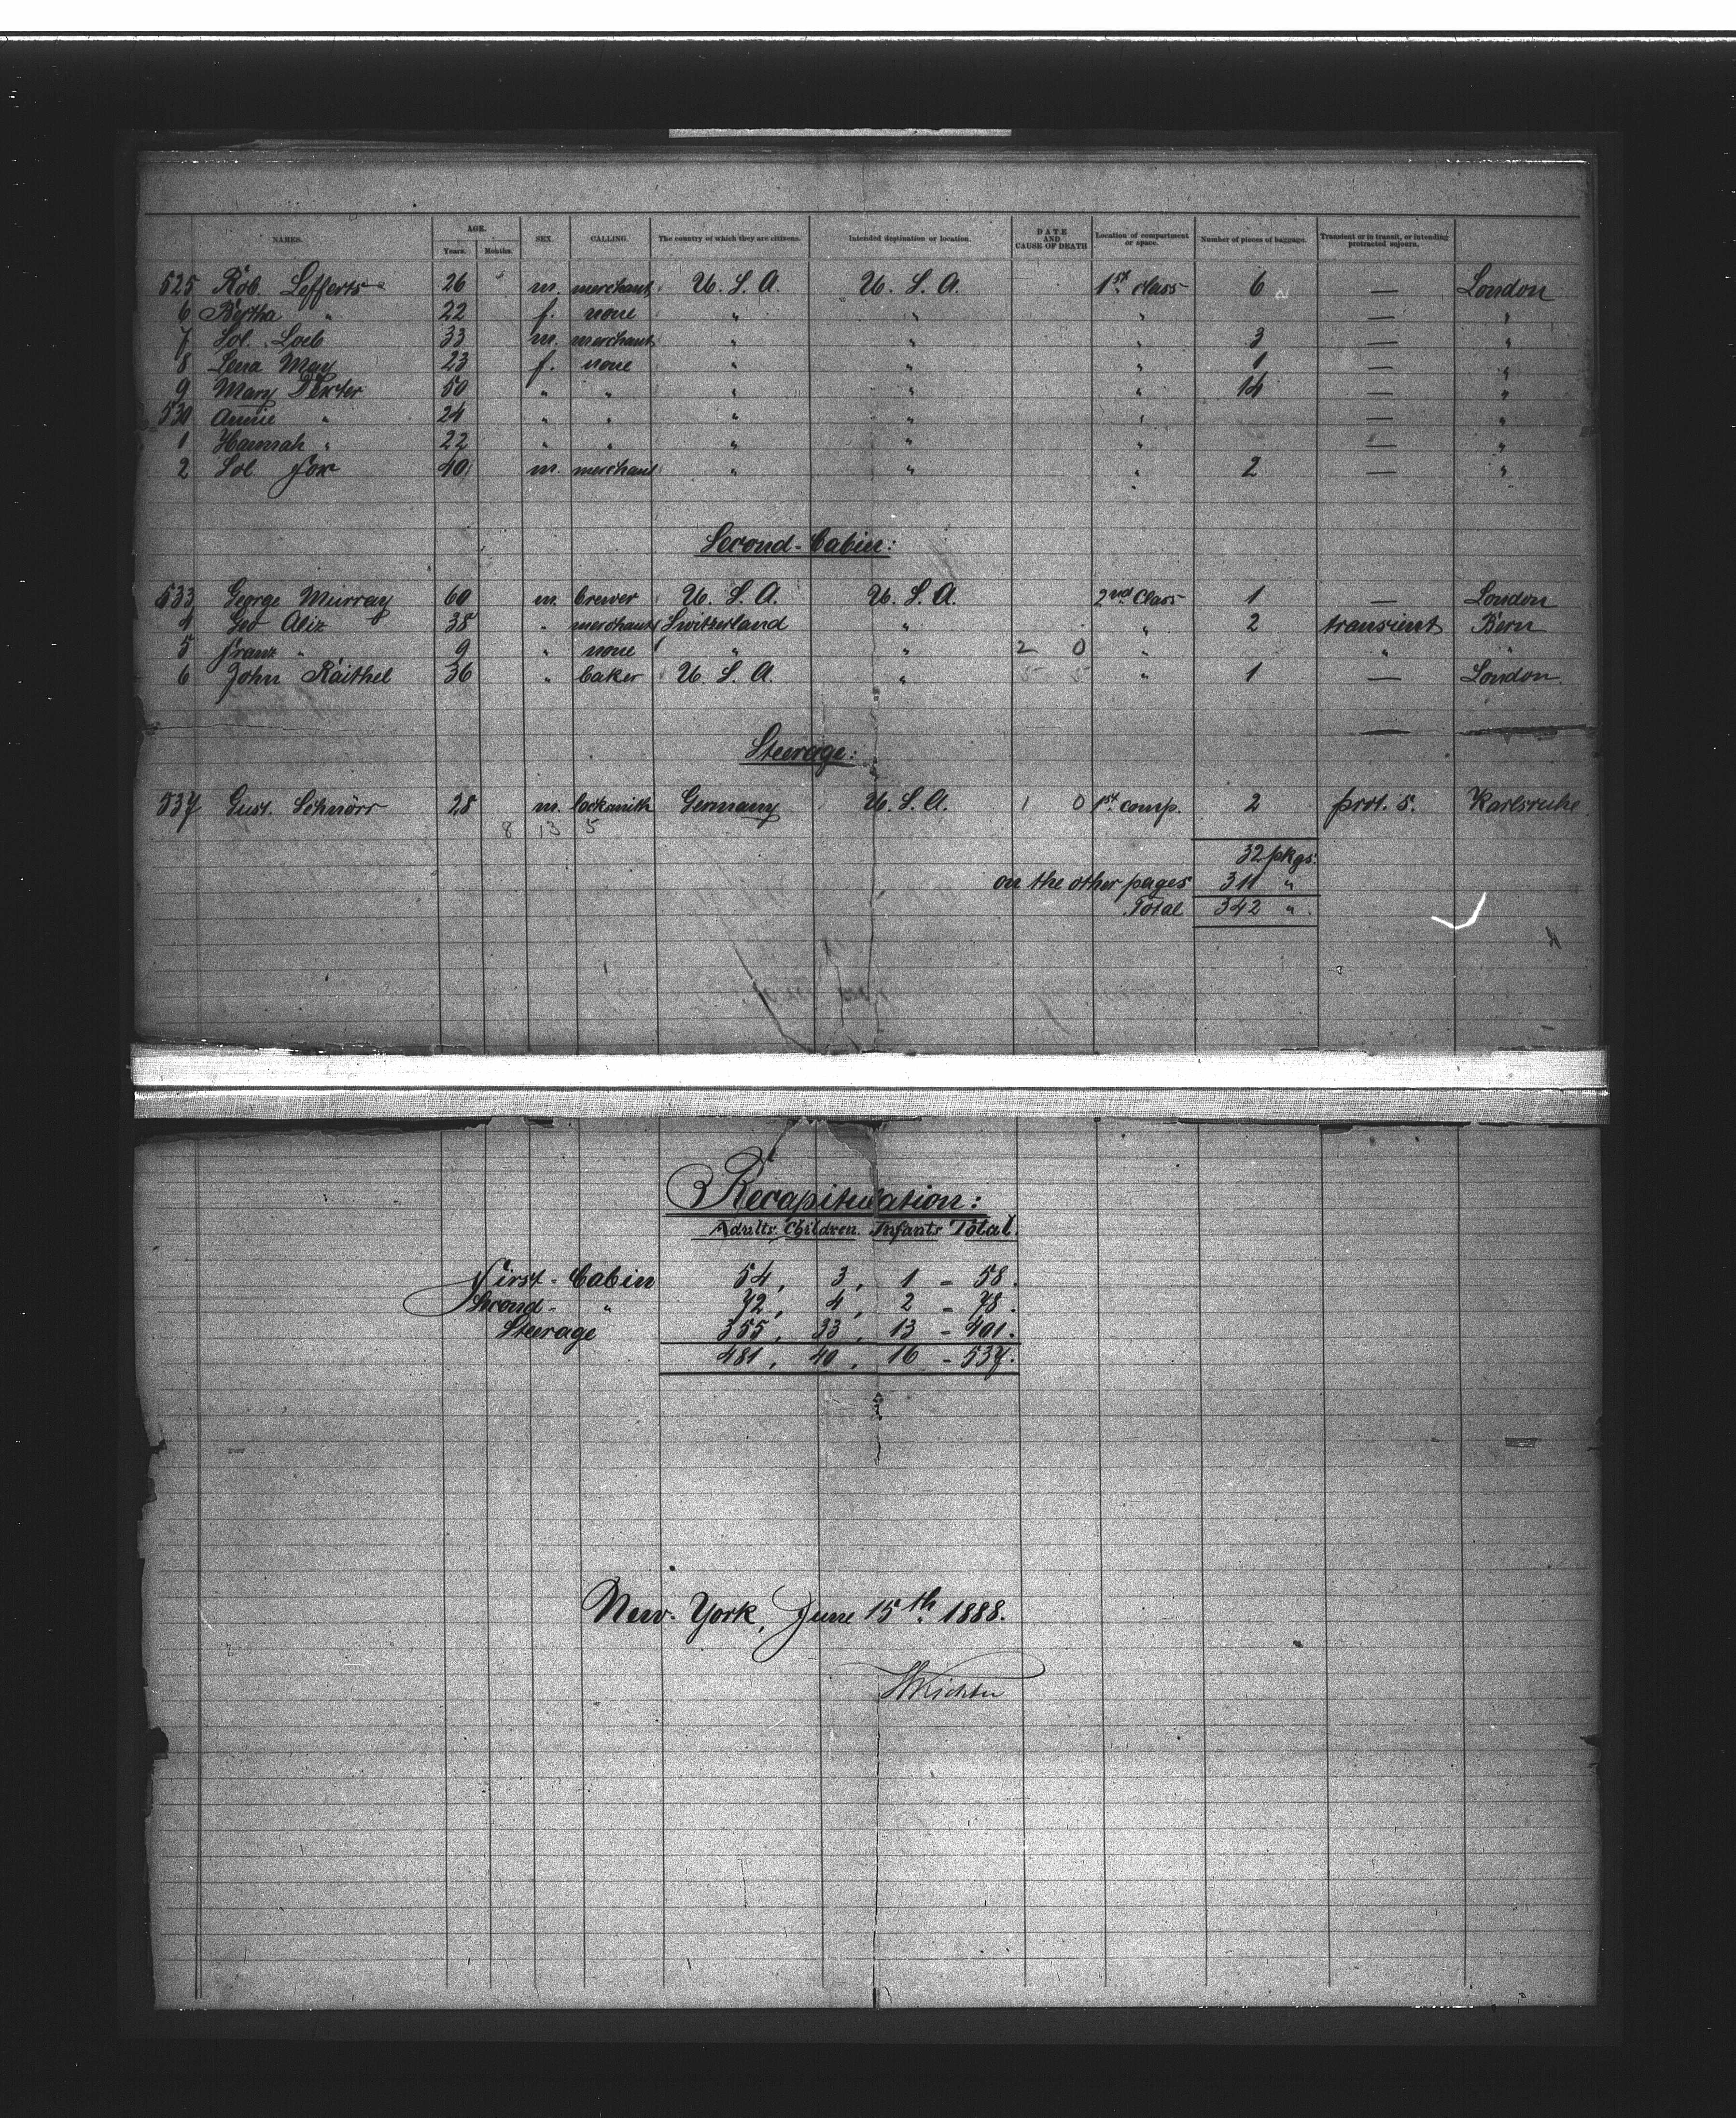 NAMES. AGE. SEX. CALLING. The country of which they are citizens. Intended destination or location. DATE AND CAUSE OF DEATH Location of compartment or space. Number of pieces of baggage. Transient or in transit, or intending protracted sojourn.
Years. Months.
525 Rob. Lefferts 26 m. merchant U. S. A. U. S. A. 1st class 6 — London
6 Bertha " 22 f. none " " " — "
7 Sol. Loeb 33 m. merchant " " " 3 — "
8 Lena May 23 f. none " " " 1 — "
9 Mary Dexter 50 " " " " " 14 — "
530 Annie " 24 " " " " " — "
1 Hannah " 22 " " " " " — "
2 Sol Fox 40 m. merchant " " " 2 — "
Second-Cabin:
533 George Murray 60 m. brewer U. S. A. U. S. A. 2nd Class 1 — London
4 Geo Aliz 38 " merchant Switzerland " " 2 transient Bern
5 Franz " 9 " none " " 2 0 " " "
6 John Raithel 36 " baker U. S. A. " 5 5 " 1 — London.
Steerage:
537 Gust. Schnörr 28 m. locksmith Germany U. S. A. 1 0 1st comp. 2 prot. s. Karlsruhe
8 13 5
32 pkgs.
on the other pages 311 "
Total 342 "
Recapitulation:
Adults. Children. Infants Total.
First-Cabin 54, 3, 1 - 58.
Second- " 72, 4, 2 - 78.
Steerage 355, 33, 13 - 401.
481, 40, 16 - 537.
New-York, June 15th 1888.
HRichter